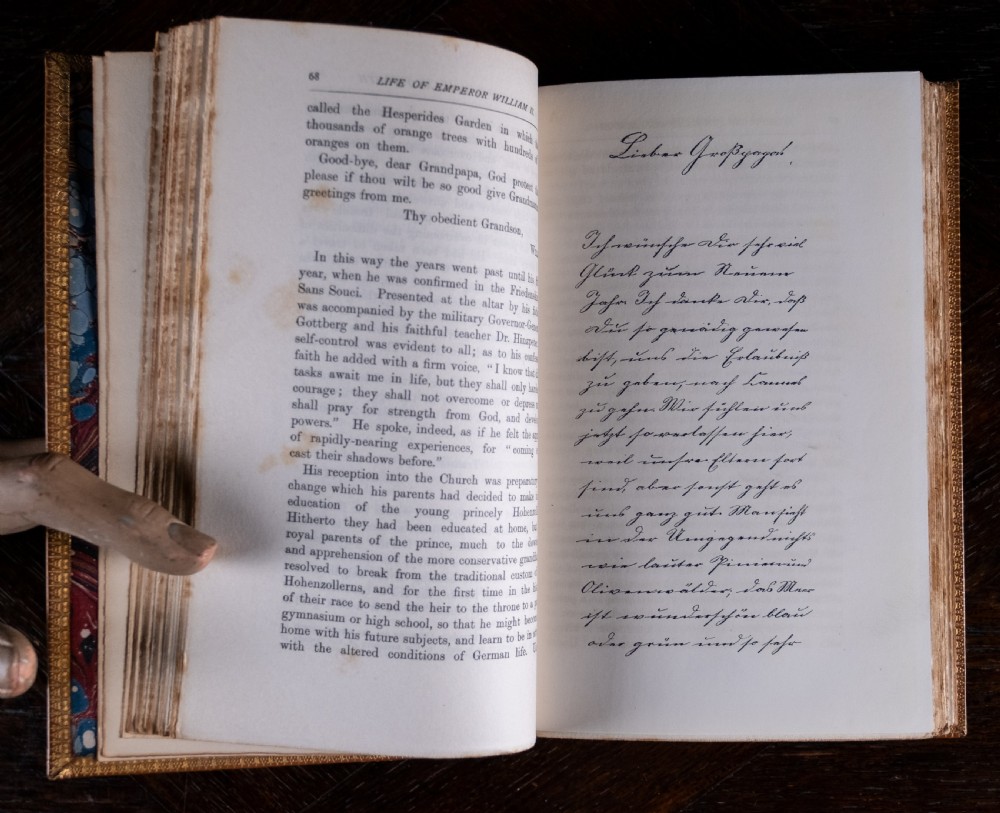 68 LIFE OF EMPEROR WILLIAM II.
called the Hesperides Garden in which
thousands of orange trees with hundreds
oranges on them.
Good-bye, dear Grandpapa, God protect
please if thou wilt be so good give
greetings from me.
Thy obedient Grandson,
In this way the years went past until his
year, when he was confirmed in the
Sans Souci. Presented at the altar by his
was accompanied by the military
Gottberg and his faithful teacher Dr.
self-control was evident to all; as to his
faith he added with a firm voice, "I know that
tasks await me in life, but they shall only
courage; they shall not overcome or
shall pray for strength from God, and
powers." He spoke, indeed, as if he felt the
of rapidly-nearing experiences, for "coming
cast their shadows before."
His reception into the Church was
change which his parents had decided to make
education of the young princely
Hitherto they had been educated at home,
royal parents of the prince, much to the
and apprehension of the more conservative
resolved to break from the traditional custom
Hohenzollerns, and for the first time in the
of their race to send the heir to the throne to a
gymnasium or high school, so that he might
home with his future subjects, and learn to be in
with the altered conditions of German life.
Lieber Großpapa,
Ich wünsche Dir sehr viel
Glück zum Neuen
Jahr. Ich danke Dir, daß
Du so genädig gewesen
bist, uns die Erlaubniß
zu geben, nach Cannes
zu gehn. Wir fühlen uns
jetzt so verlassen hier,
weil unsre Eltern fort
sind, aber sonst geht es
uns ganz gut. Man sieht
in der Umgegend nichts
wie lauter Pinien und
Olivenwälder, das Meer
ist wunderschön blau
oder grün und so sehr